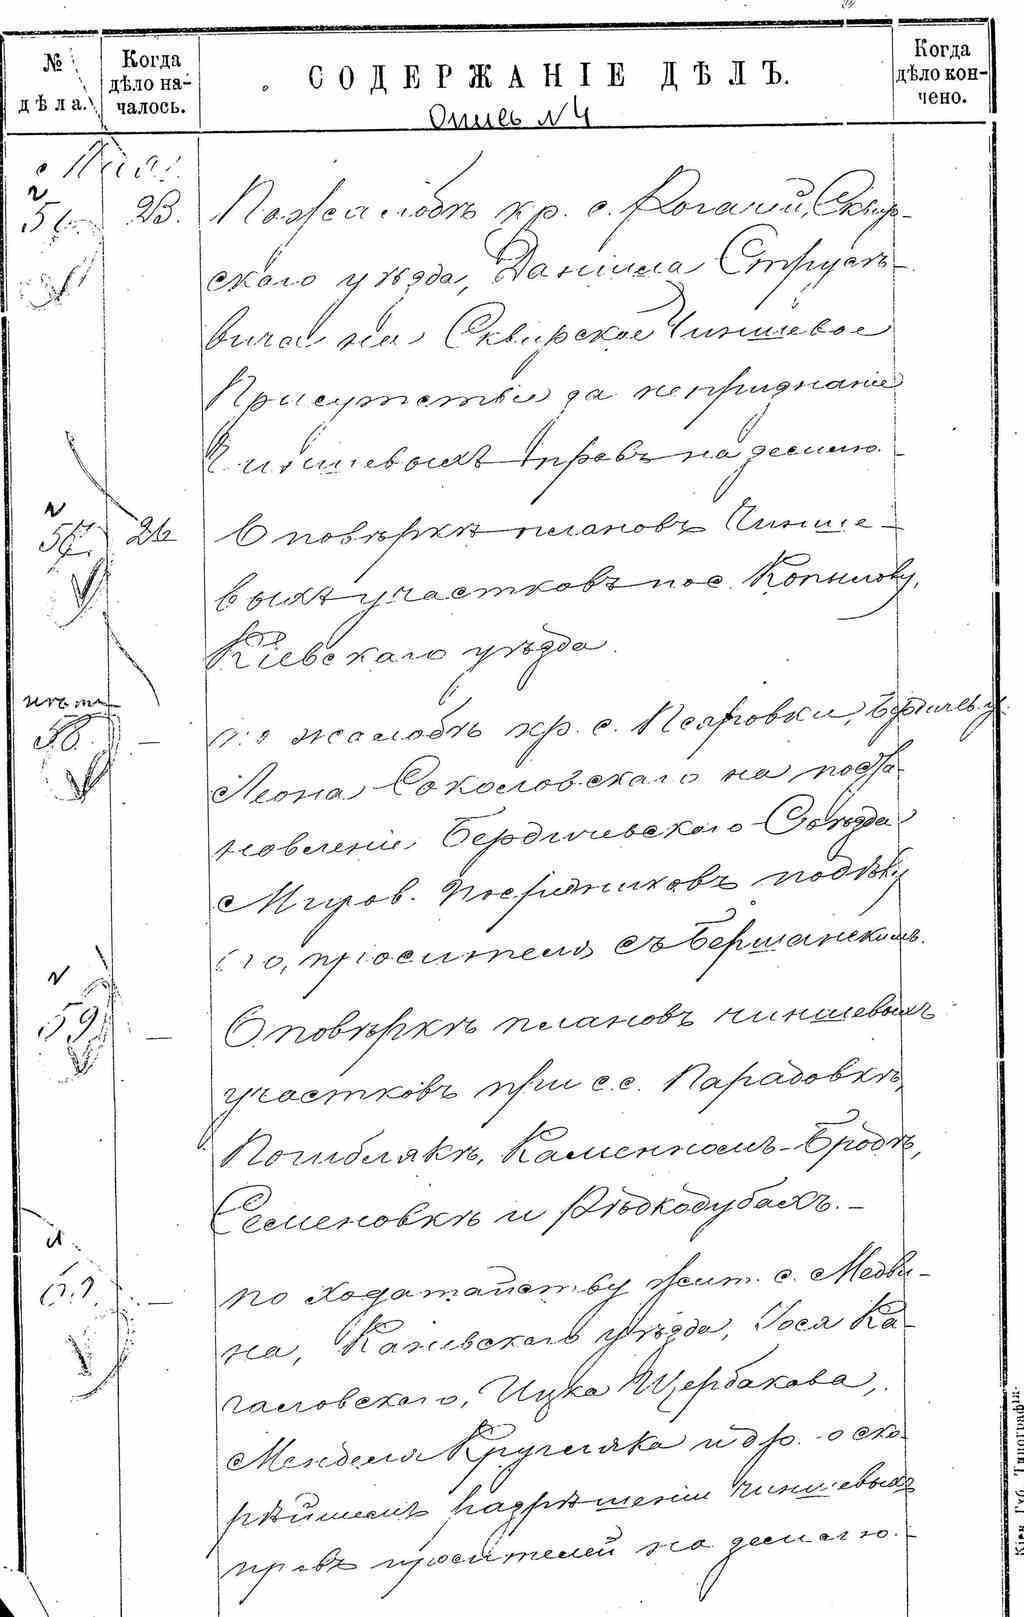 № дѣла.
Когда дѣло началось.
СОДЕРЖАНІЕ ДѢЛЪ.
Когда дѣло кончено.
Опись №4
Мая
56. 23. По жалобѣ кр. с. Рогачей, Сквир-
скаго уѣзда, Даніила Струсѣ-
вича на Сквирское Чиншевое
Присутствіе за непризнаніе
Чиншевыхъ правъ на землю.
57. 26 О повѣркѣ плановъ Чинше-
выхъ участковъ пос. Копылову,
Кіевскаго уѣзда.
нѣтъ
58. — по жалобѣ кр. с. Пеяровки, Бердичев. у.
Леона Соколовскаго на поста-
новленіе Бердичевскаго Съѣзда
Миров. Посредниковъ по дѣлу
его, просителя съ Бершанскимъ.
59. — О повѣркѣ плановъ чиншевыхъ
участковъ при с.с. Парадовкѣ,
Погиблякѣ, Каменномъ-Бродѣ,
Семеновкѣ и Рѣдкодубахъ. —
60. — по ходатайству жит. с. Медви-
на, Каневскаго уѣзда, Іося Ка-
галовскаго, Ицка Щербакова,
Менделя Кругляка и др. о ско-
рѣйшемъ разрѣшеніи чиншевыхъ
правъ просителей на землю. —
Кіев. Губ. Типографія.